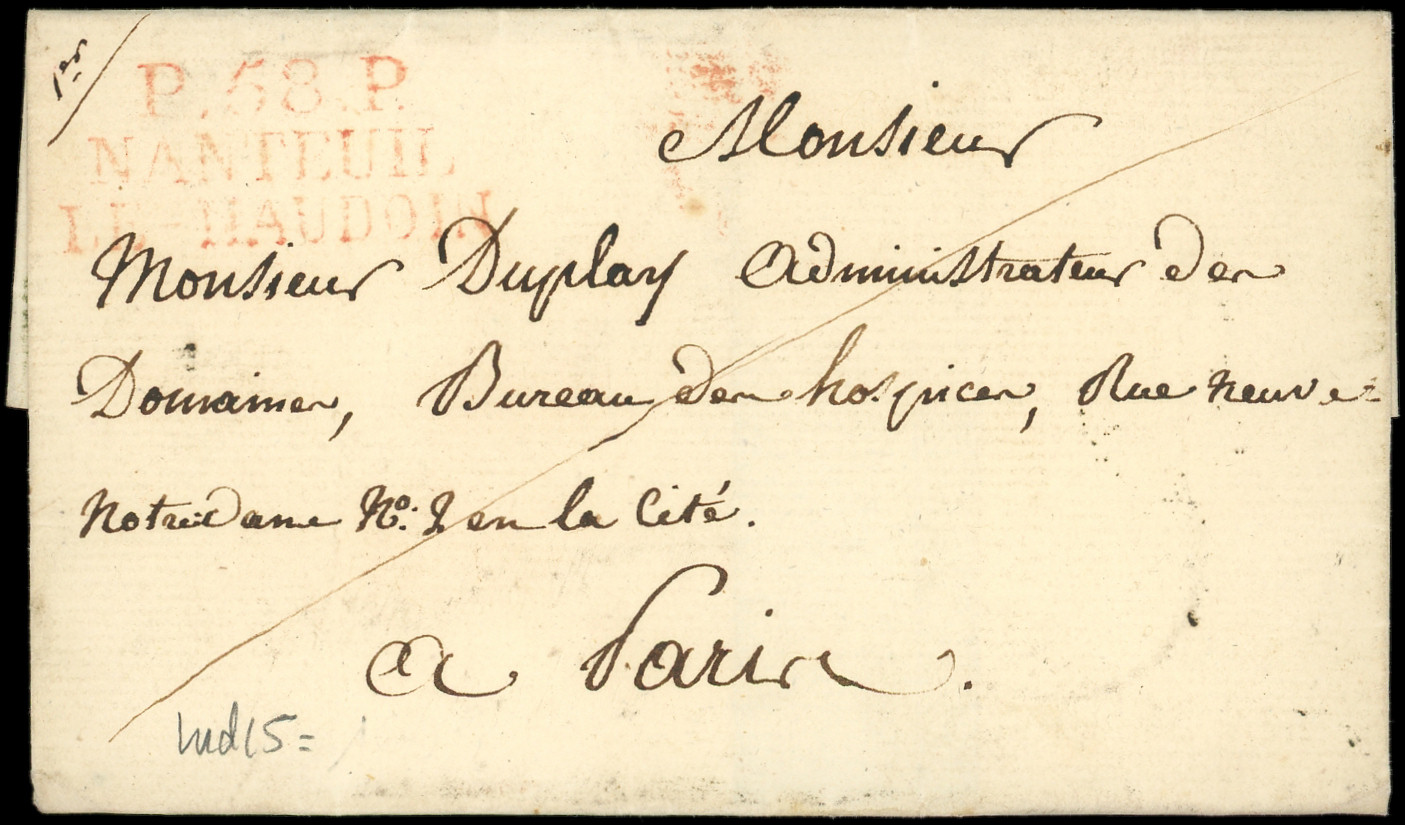 1er
P.58.P.
NANTEUIL
LE-HAUDOIN
Monsieur
Monsieur Duplay Administrateur des
Domaines, Bureau des hospices, Rue neuve-
Notre Dame No. 2 en la Cité.
a Paris.